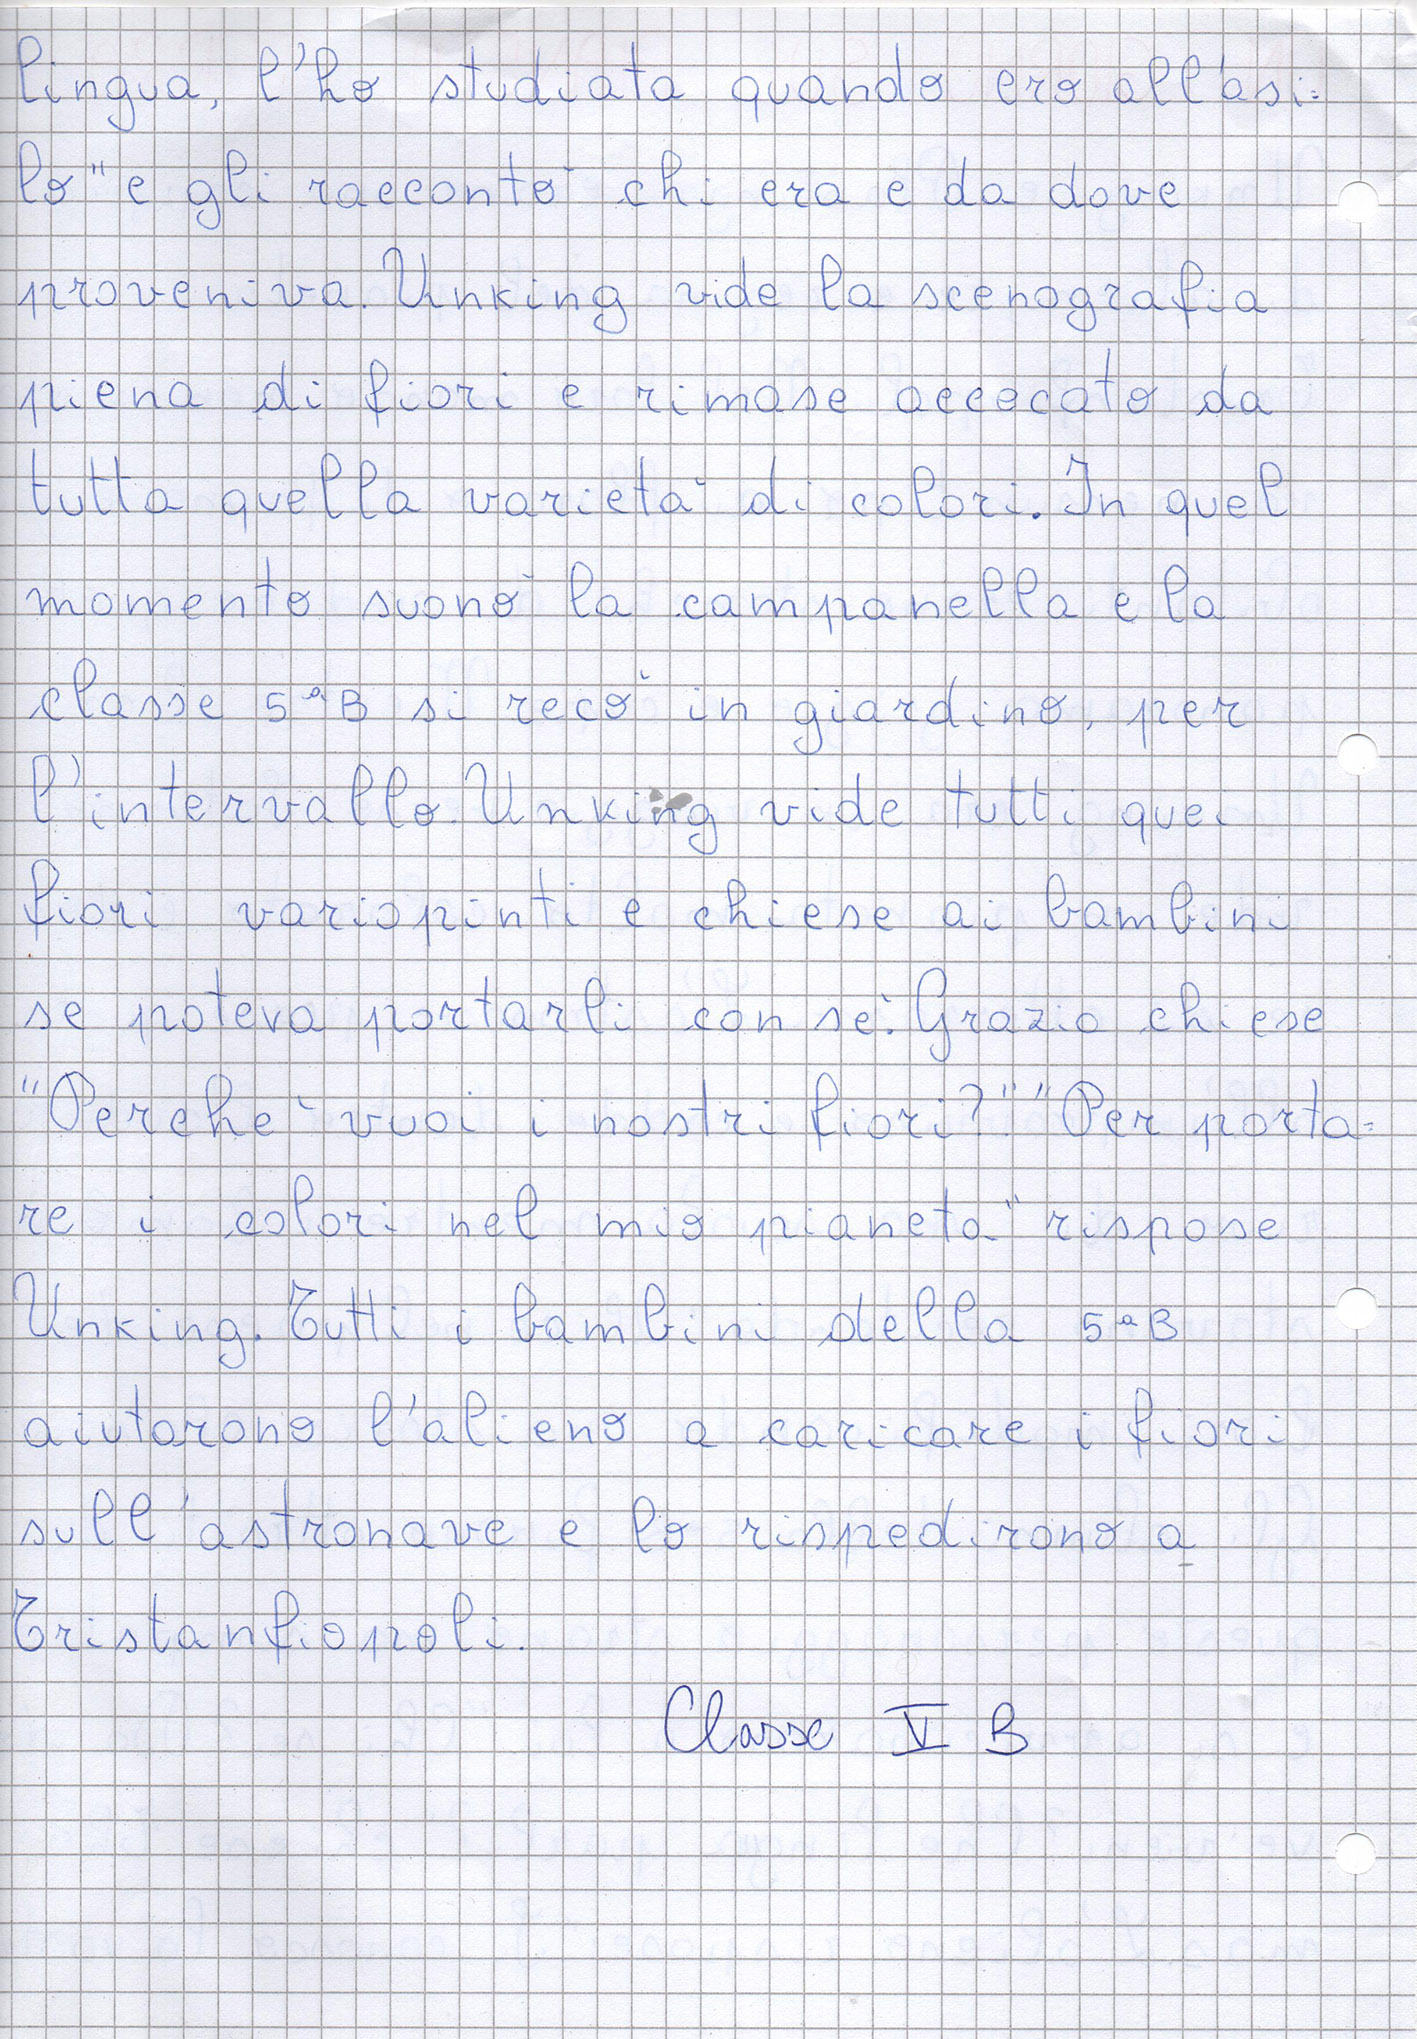 lingua, l'ho studiata quando ero all'asi=
lo" e gli raccontò chi era e da dove
proveniva. Unking vide la scenografia
piena di fiori e rimase accecato da
tutta quella varietà di colori. In quel
momento suonò la campanella e la
classe 5ªB si recò in giardino, per
l'intervallo. Unking vide tutti quei
fiori variopinti e chiese ai bambini
se poteva portarli con sè. Grazio chiese
"Perchè vuoi i nostri fiori?" "Per porta=
re i colori nel mio pianeta" rispose
Unking. Tutti i bambini della 5ªB
aiutorono l'alieno a caricare i fiori
sull'astronave e lo rispedirono a
Tristanfiopoli.
Classe V B